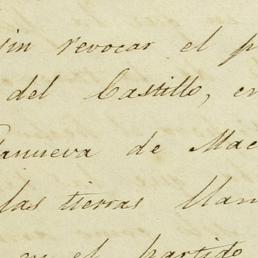 sin revocar el p
del Castillo, en
llanueva de Mac
las tierras llam
en el partido